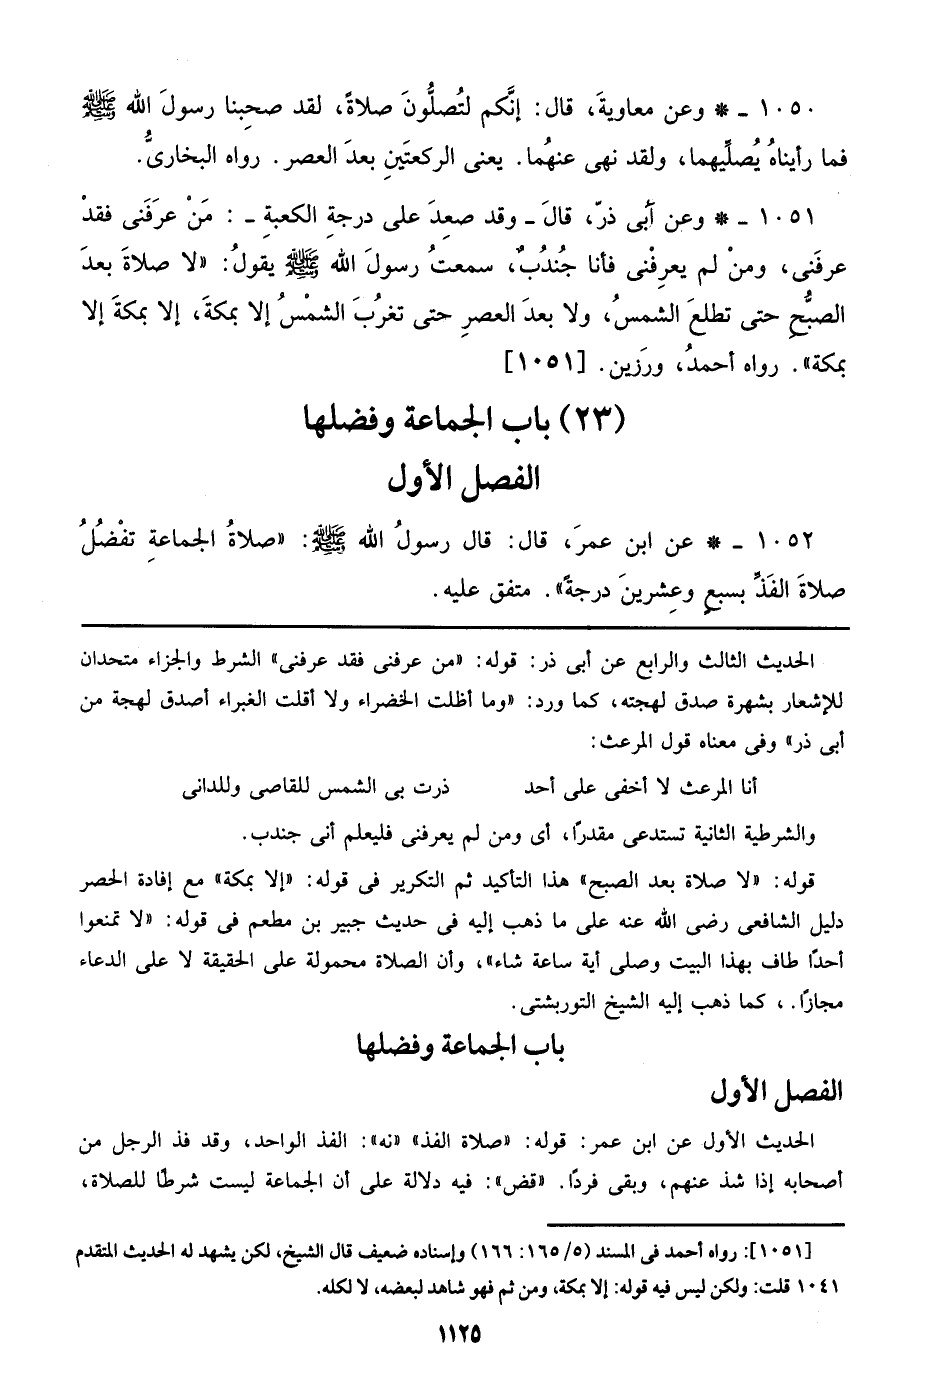 ١٠٥٠ ـ * وعن معاويةَ، قال: إنَّكم لتُصلُّونَ صلاةً، لقد صحِبنا رسولَ الله ﷺ
فما رأيناهُ يُصلِّيهما، ولقد نهى عنهُما. يعنى الركعتَينِ بعدَ العصر. رواه البخاريُّ.
١٠٥١ ـ * وعن أبى ذرّ، قالَ ـ وقد صعِدَ على درجةِ الكعبةِ ـ : مَنْ عرَفَنى فقدْ
عرفَنى، ومنْ لم يعرِفْنى فأنا جُندُبٌ، سمعتُ رسولَ الله ﷺ يقولُ: «لا صلاةَ بعدَ
الصبُّحِ حتى تطلعَ الشمسُ، ولا بعدَ العصرِ حتى تغرُبَ الشمْسُ إلا بمكةَ، إلا بمكةَ إلا
بمكة». رواه أحمدُ، ورَزين. [١٠٥١]
(٢٣) باب الجماعة وفضلها
الفصل الأول
١٠٥٢ ـ * عن ابن عمرَ، قال: قال رسولُ الله ﷺ: «صلاةُ الجماعةِ تفْضُلُ
صلاةَ الفَذِّ بسبعٍ وعِشرينَ درجةً». متفق عليه.
الحديث الثالث والرابع عن أبى ذر: قوله: «من عرفنى فقد عرفنى» الشرط والجزاء متحدان
للإشعار بشهرة صدق لهجته، كما ورد: «وما أظلت الخضراء ولا أقلت الغبراء أصدق لهجة من
أبى ذر» وفى معناه قول المرعث:
أنا المرعث لا أخفى على أحد ذرت بى الشمس للقاصى وللدانى
والشرطية الثانية تستدعى مقدرًا، أى ومن لم يعرفنى فليعلم أنى جندب.
قوله: «لا صلاة بعد الصبح» هذا التأكيد ثم التكرير فى قوله: «إلا بمكة» مع إفادة الحصر
دليل الشافعى رضى الله عنه على ما ذهب إليه فى حديث جبير بن مطعم فى قوله: «لا تمنعوا
أحدًا طاف بهذا البيت وصلى أية ساعة شاء»، وأن الصلاة محمولة على الحقيقة لا على الدعاء
مجازًا. ، كما ذهب إليه الشيخ التوربشتى.
باب الجماعة وفضلها
الفصل الأول
الحديث الأول عن ابن عمر: قوله: «صلاة الفذ» «نه»: الفذ الواحد، وقد فذ الرجل من
أصحابه إذا شذ عنهم، وبقى فردًا. «قض»: فيه دلالة على أن الجماعة ليست شرطًا للصلاة،
[١٠٥١]: رواه أحمد فى المسند (٥/ ١٦٥: ١٦٦) وإسناده ضعيف قال الشيخ، لكن يشهد له الحديث المتقدم
١٠٤١ قلت: ولكن ليس فيه قوله: إلا بمكة، ومن ثم فهو شاهد لبعضه، لا لكله.
١١٢٥